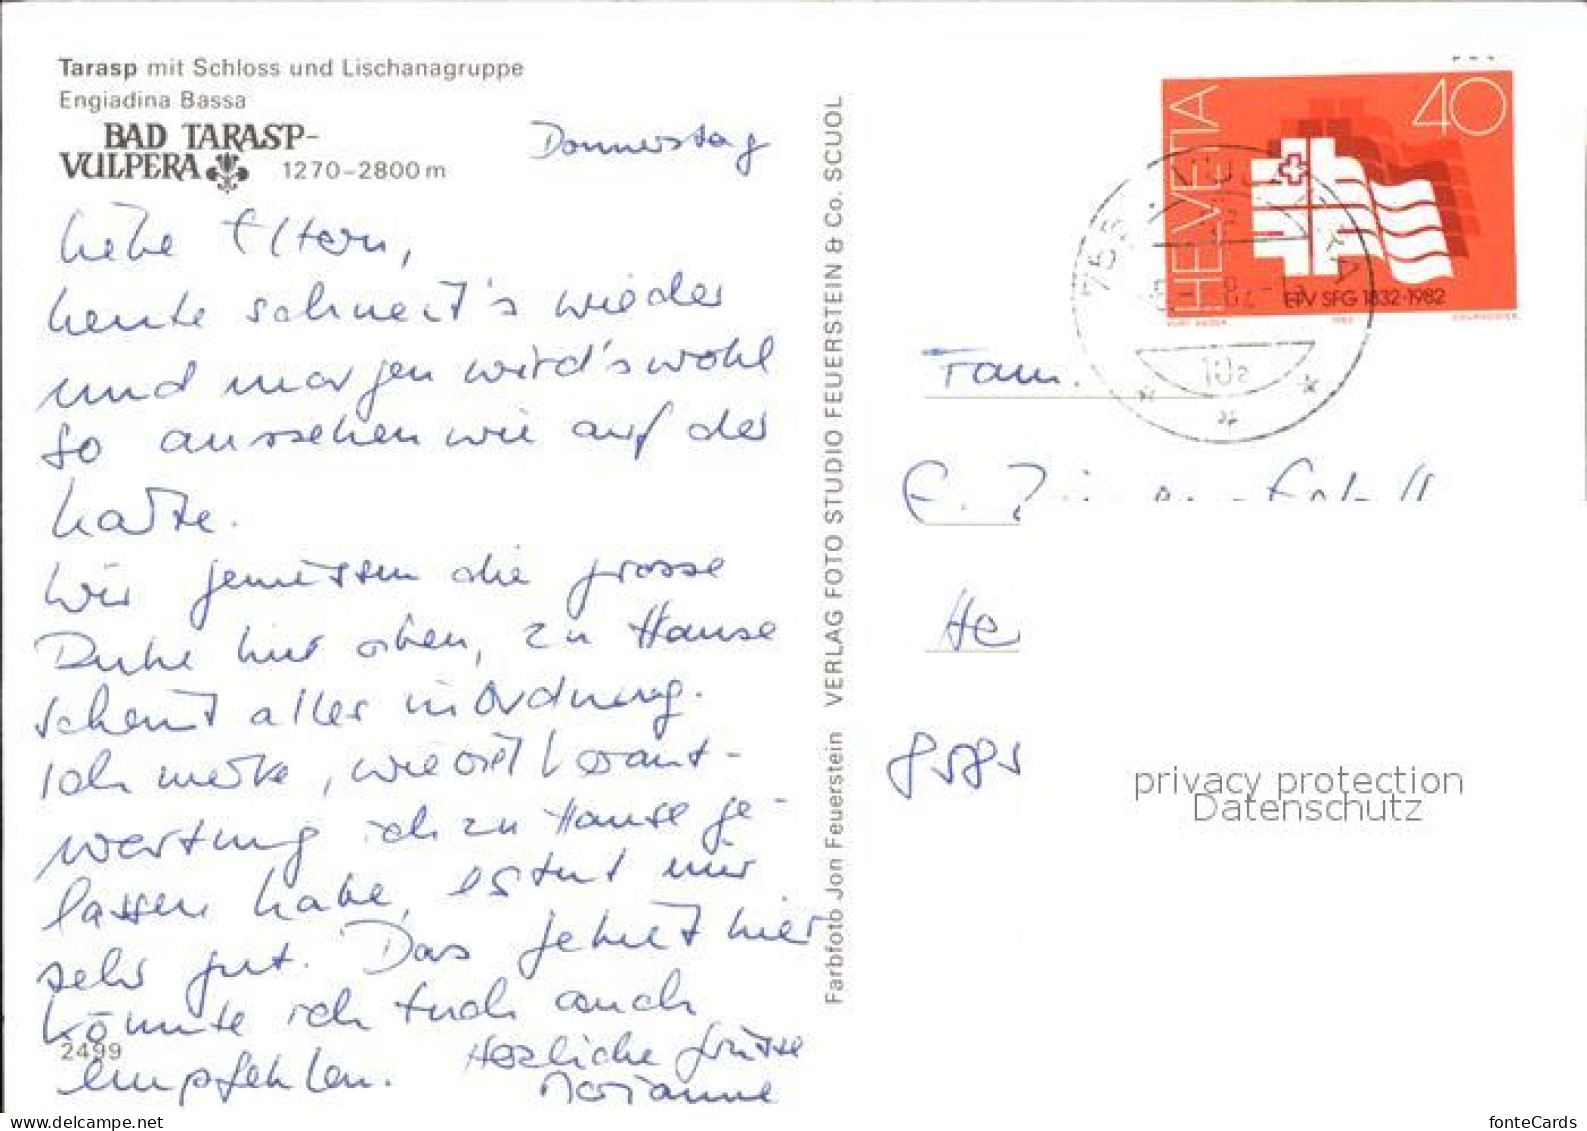 Tarasp mit Schloss und Lischanagruppe
Engiadina Bassa
BAD TARASP-
VULPERA 1270–2800 m
Donnerstag
Liebe Eltern,
heute schneit's wieder
und morgen wird's wohl
so aussehen wie auf der
Karte.
Wir geniessen die grosse
Ruhe hier oben, zu Hause
scheint alles in Ordnung.
Ich merke, wieviel Verant-
wortung ich zu Hause ge-
lassen habe, es tut mir
sehr gut. Das Gebiet hier
könnte ich Euch auch
empfehlen. Herzliche Grüsse
Marianne
2499
Farbfoto Jon Feuerstein VERLAG FOTO STUDIO FEUERSTEIN & Co. SCUOL
HELVETIA
40
EPV SFG 1832·1982
Fam.
E.
He
8585
privacy protection
Datenschutz
www.delcampe.net
fonteCards